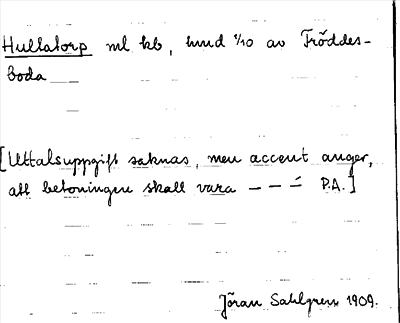 Hullatorp ml kb, hmd 1/10 av Fröddes-
boda
[Uttalsuppgift saknas, men accent anger,
att betoningen skall vara – – –́ P.A.]
Jöran Sahlgren 1909.